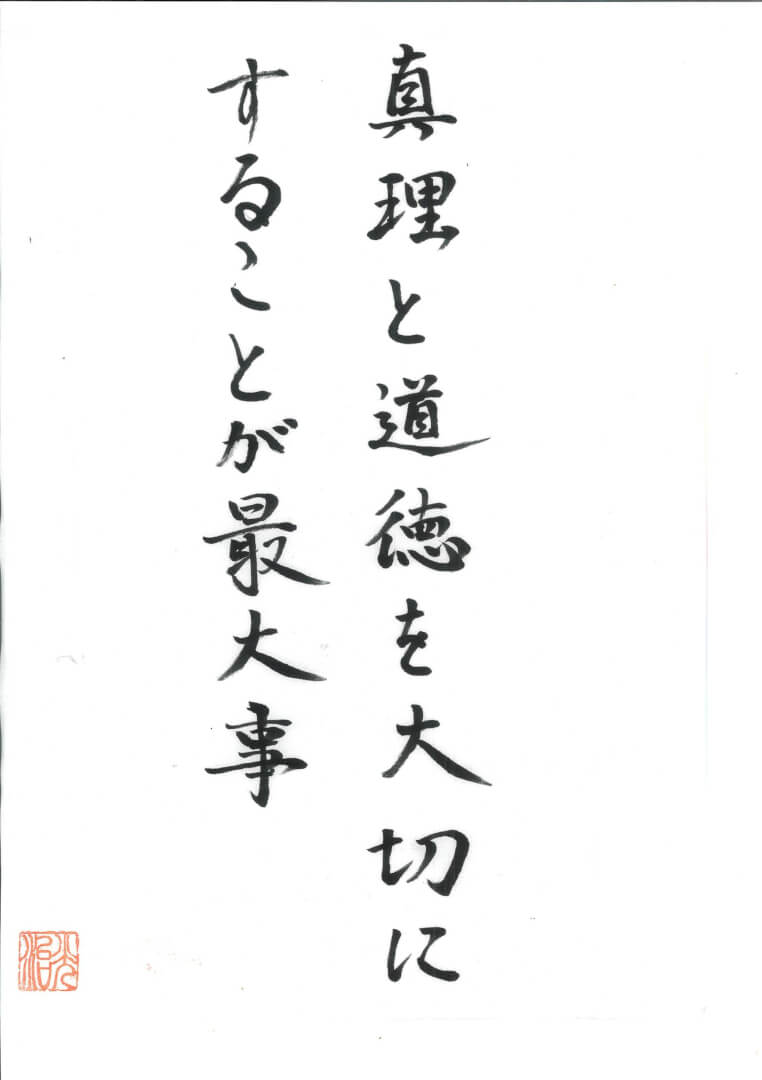 真理と道徳を大切に
することが最大事